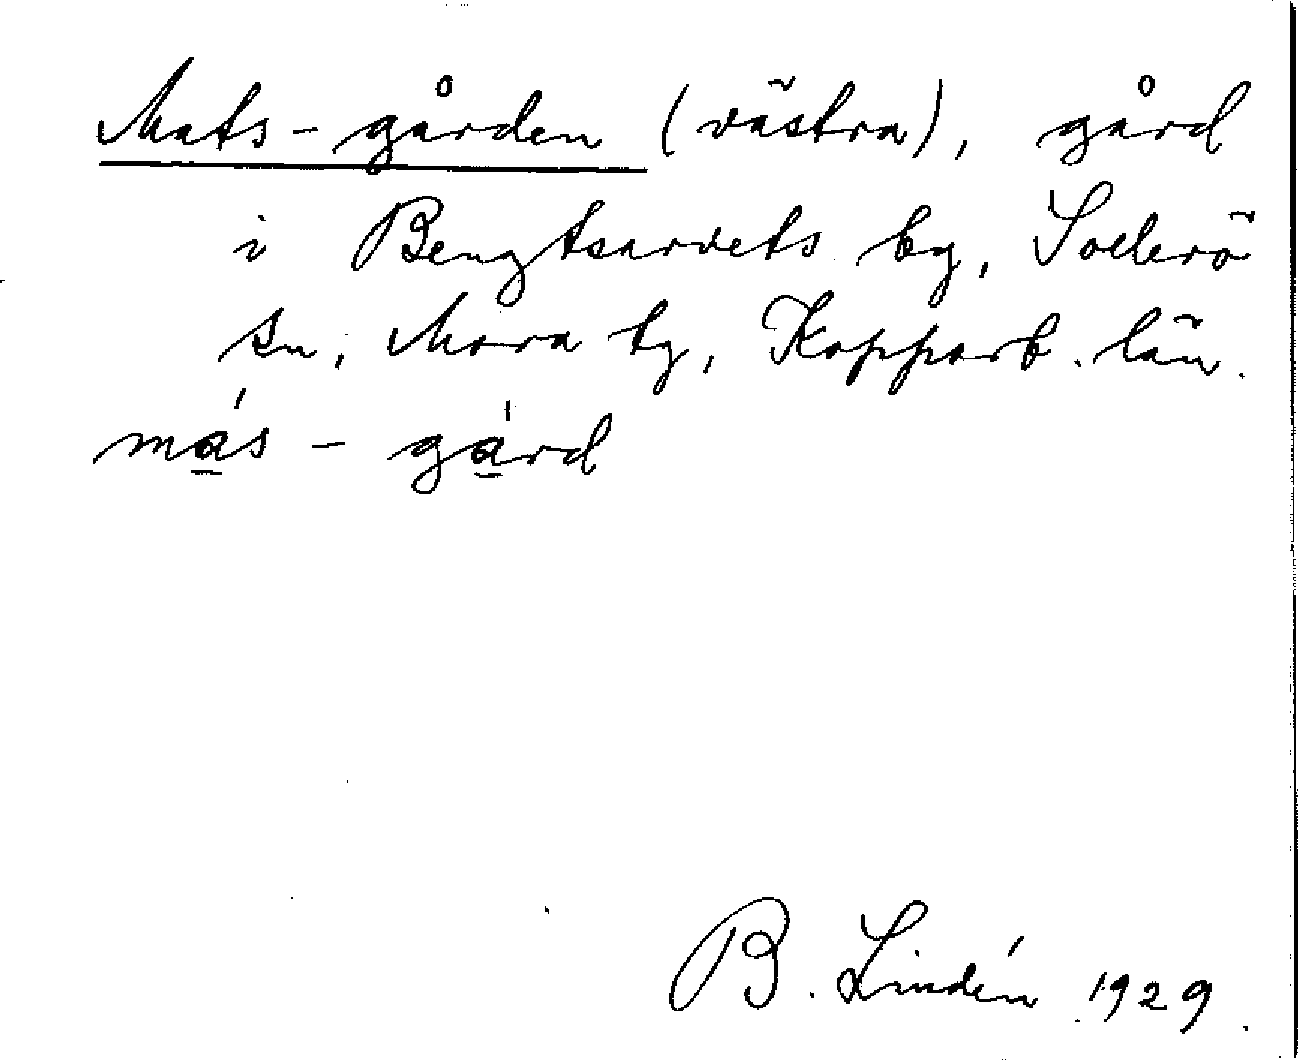 Mats-gården (västra), gård
i Bengtsarvets by, Sollerö
sn, Mora tg, Kopparb. län.
má̱s - gá̱rd
B. Lindén 1929.